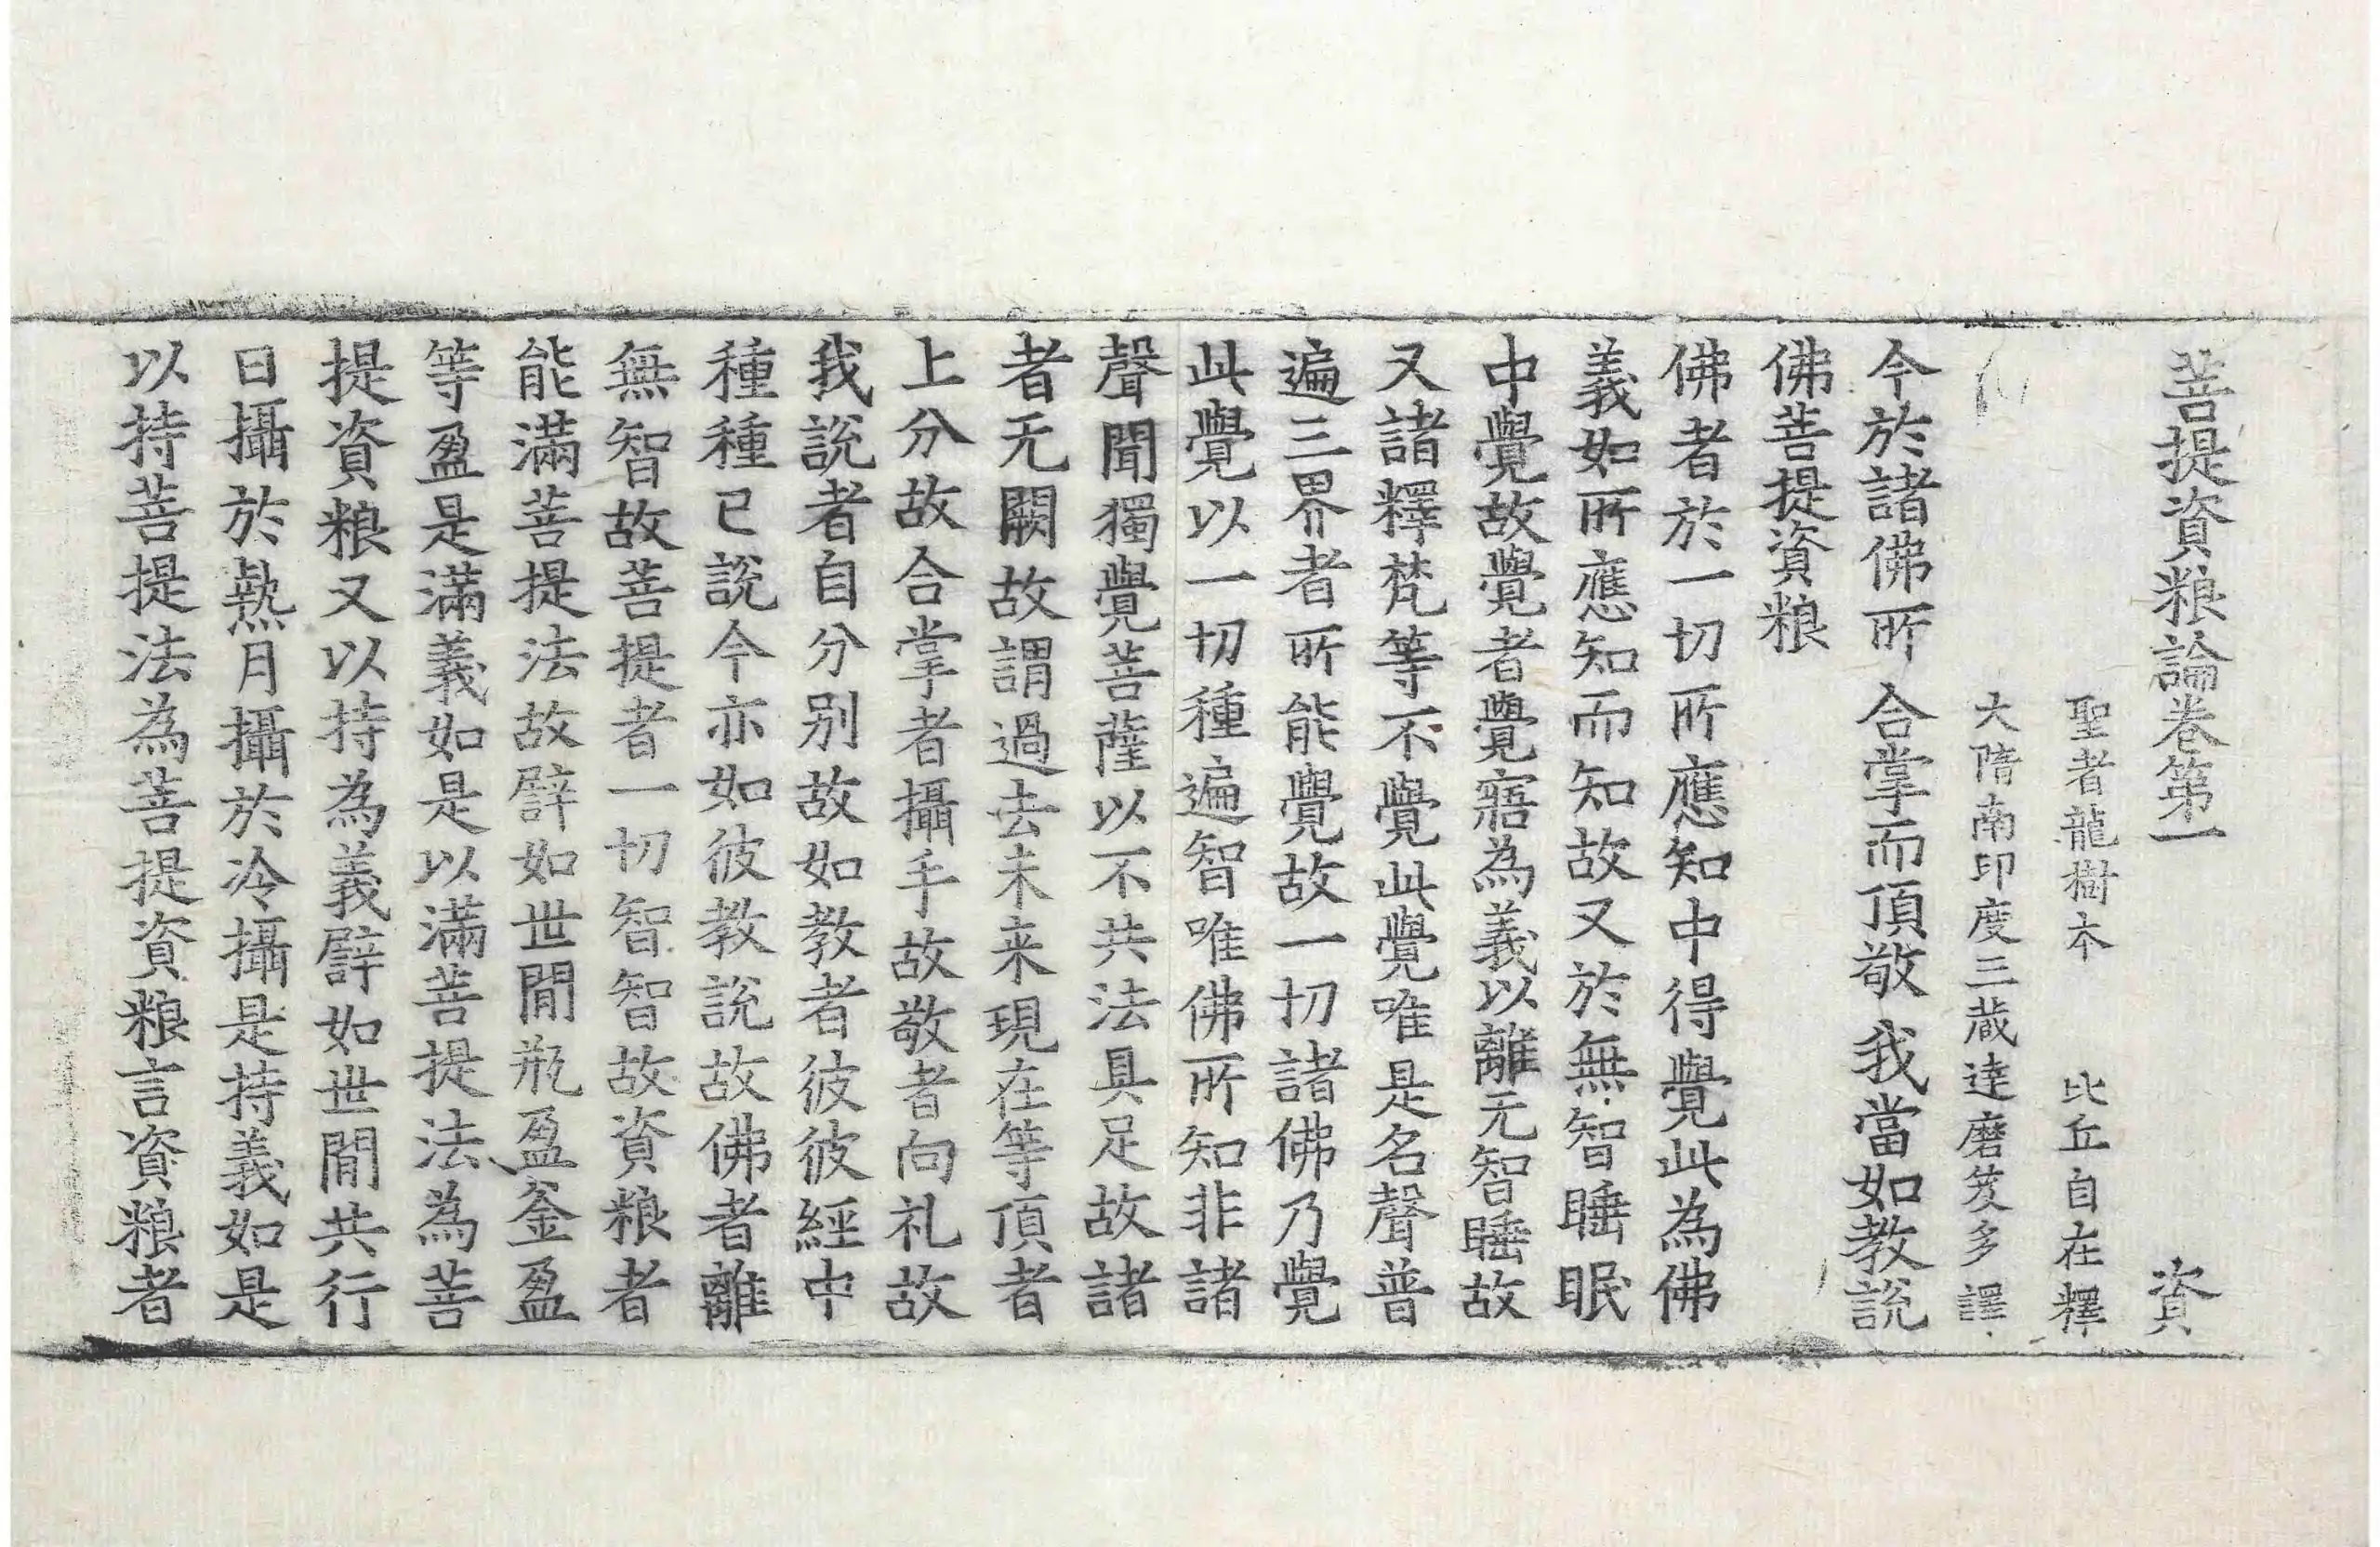 菩提資粮論卷第一　資
聖者龍樹本　比丘自在釋
大隋南印度三蔵達磨笈多譯
今於諸佛所　合掌而頂敬　我當如教說
佛菩提資粮
佛者於一切所應知中得覺此為佛
義如所應知而知故又於無智睡眠
中覺故覺者覺寤為義以離无智睡故
又諸釋梵等不覺此覺唯是名聲普
遍三界者所能覺故一切諸佛乃覺
此覺以一切種遍智唯佛所知非諸
聲聞獨覺菩薩以不共法具足故諸
者无闕故謂過去未来現在等頂者
上分故合掌者攝手故敬者向礼故
我說者自分別故如教者彼彼經中
種種已說今亦如彼教說故佛者離
無智故菩提者一切智智故資粮者
能滿菩提法故譬如世間瓶盈釜盈
等盈是滿義如是以滿菩提法為菩
提資粮又以持為義譬如世間共行
日攝於熱月攝於冷攝是持義如是
以持菩提法為菩提資粮言資粮者